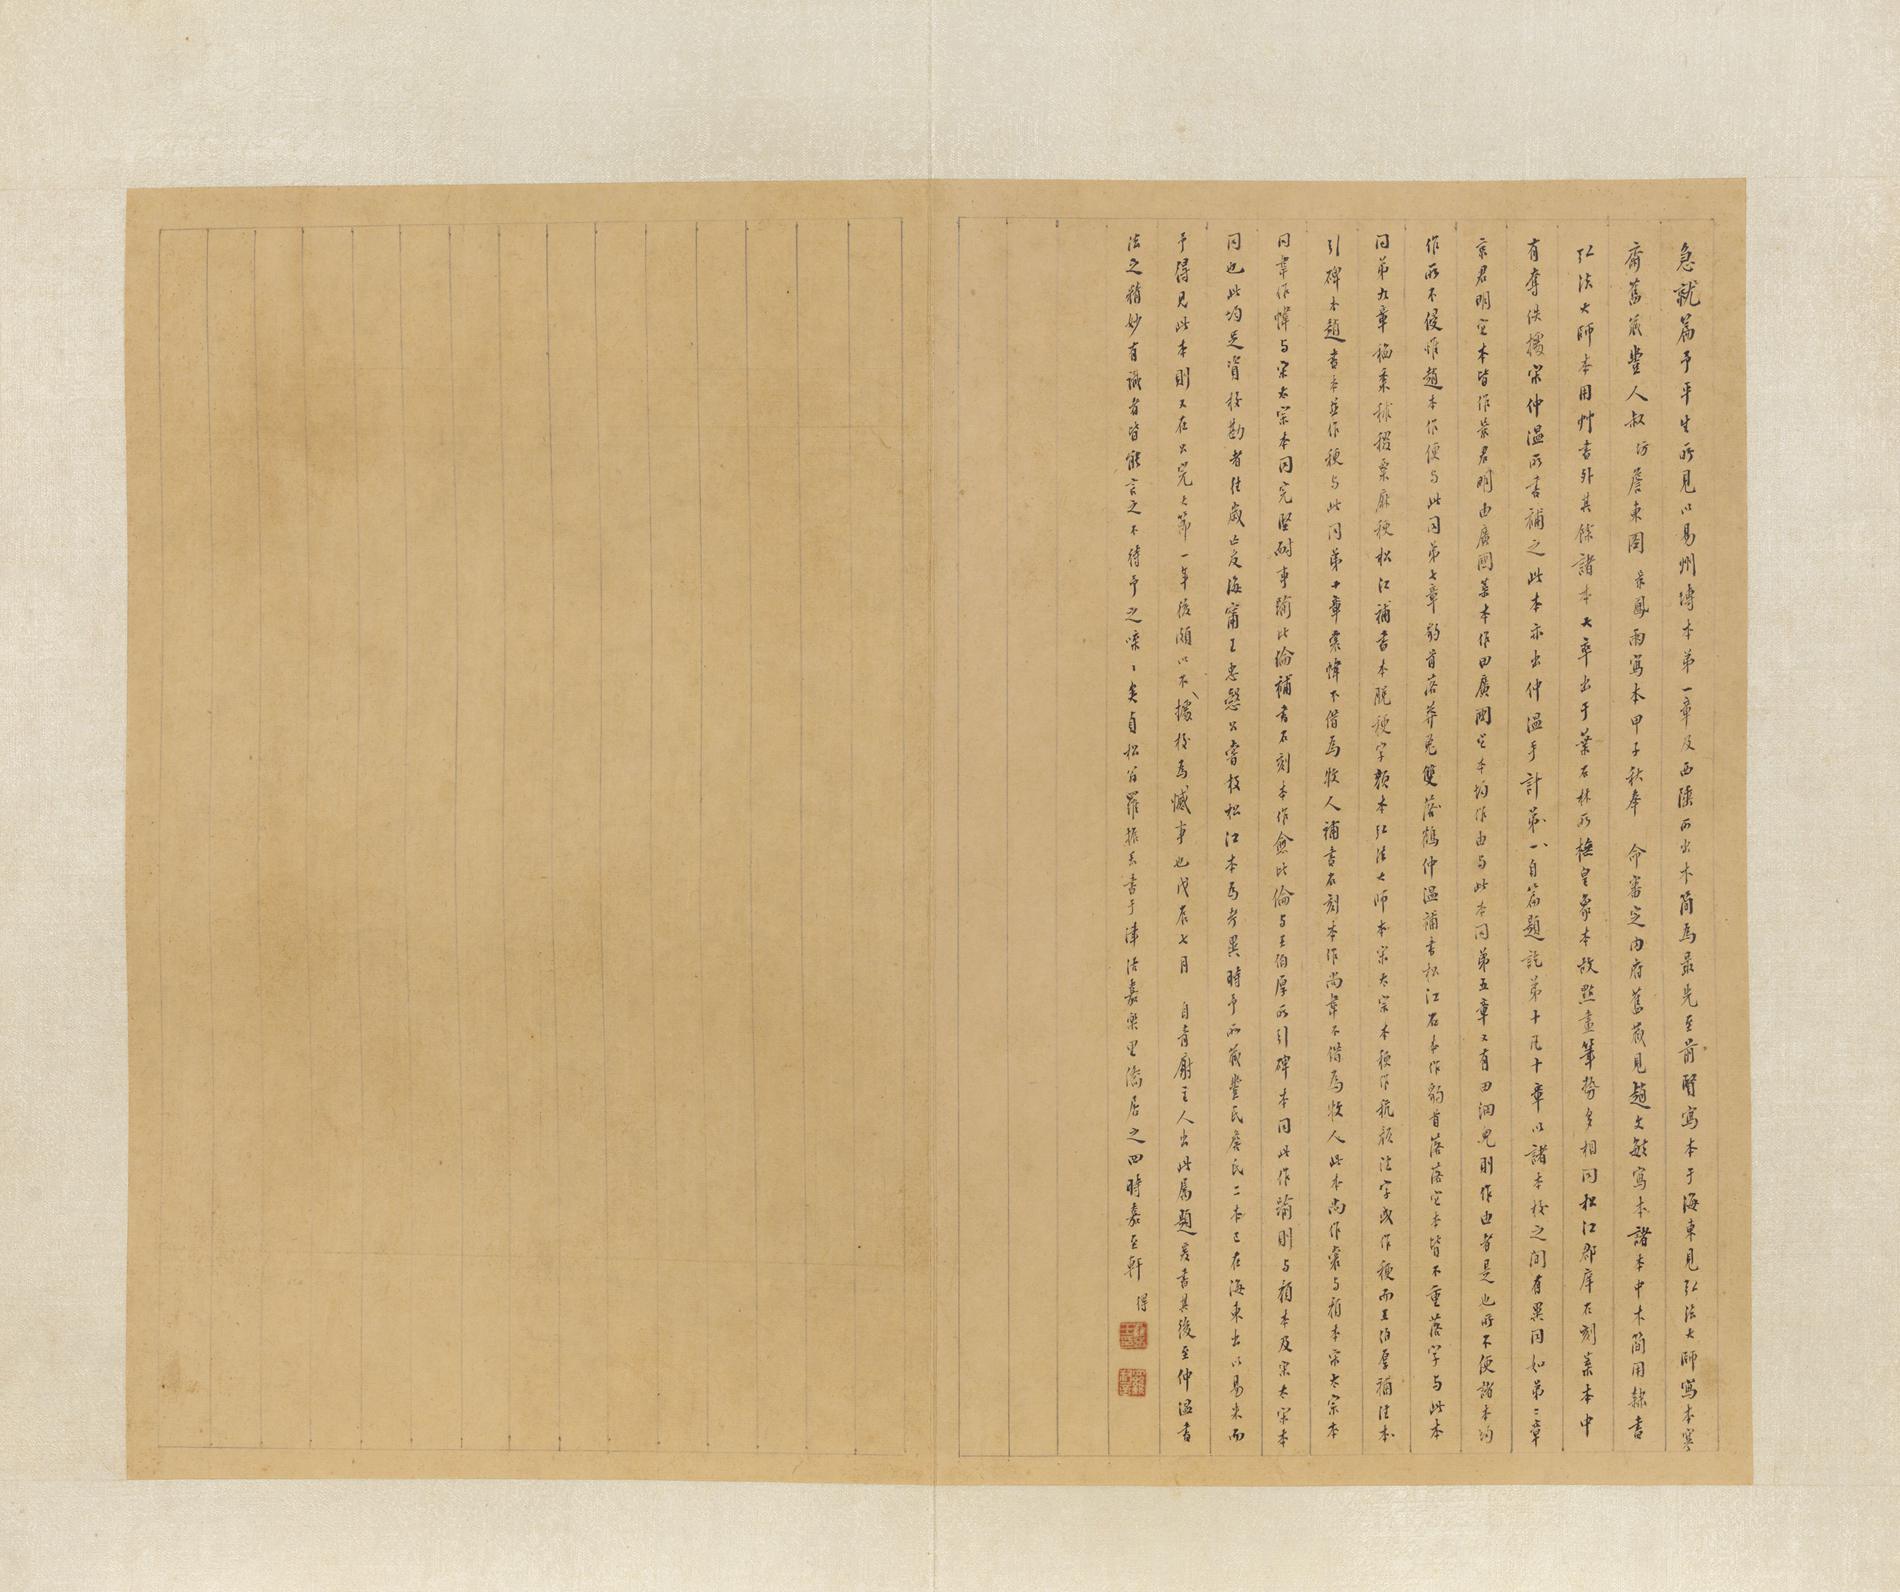 急就篇予平生所見以易州塼本第一章及西陲所出木簡為最先至前賢寫本于海東見弘法大師寫本寒
齋舊藏豐人叔坊詹東圖景鳳兩寫本甲子秋奉 命審定內府舊藏見趙文敏寫本諸本中木簡用隸書
弘法大師本用艸書外其餘諸本大率出于葉石林所橅皇象本故點畫筆勢多相同松江郡庠石刻葉本中
有奪佚據宋仲溫所書補之此本亦出仲溫手計第一自篇題訖第十凡十章以諸本校之間有異同如第二章
京君明它本皆作景君明由廣國葉本作田廣國它本均作由与此本同第五章又有田細兒則作由者是也所不便諸本均
作所不侵惟趙本作便与此同第七章豹首落莽兔雙落鶴仲溫補書松江石本作豹首落落它本皆不重落字与此本
同第九章稻黍秫稷粟麻秔松江補書本脫秔字顏本弘法大師本宋太宗本秔作秔顏注字或作稉而王伯厚補注本
引碑本趙書本並作稉与此同第十章裳幃不借為牧人補書石刻本作尚韋不借為牧人此本尚作裳与顏本宋太宗本
同韋作幃与宋太宗本同完堅耐事踰比倫補書石刻本作愈比倫与王伯厚所引碑本同此作踰則与顏本及宋太宗本
同也此均足資校勘者往歲亡友海甯王忠愨公嘗校松江本為考異時予所藏豐氏詹氏二本已在海東出以易米而
予得見此本則又在公完大節一年後頗以不、據校為憾事也戊辰七月 自青廎主人出此屬題爰書其後至仲溫書
法之精妙有識者皆能言之不待予之喋〻矣貞松翁羅振玉書于津沽嘉樂里僑居之四時嘉至軒